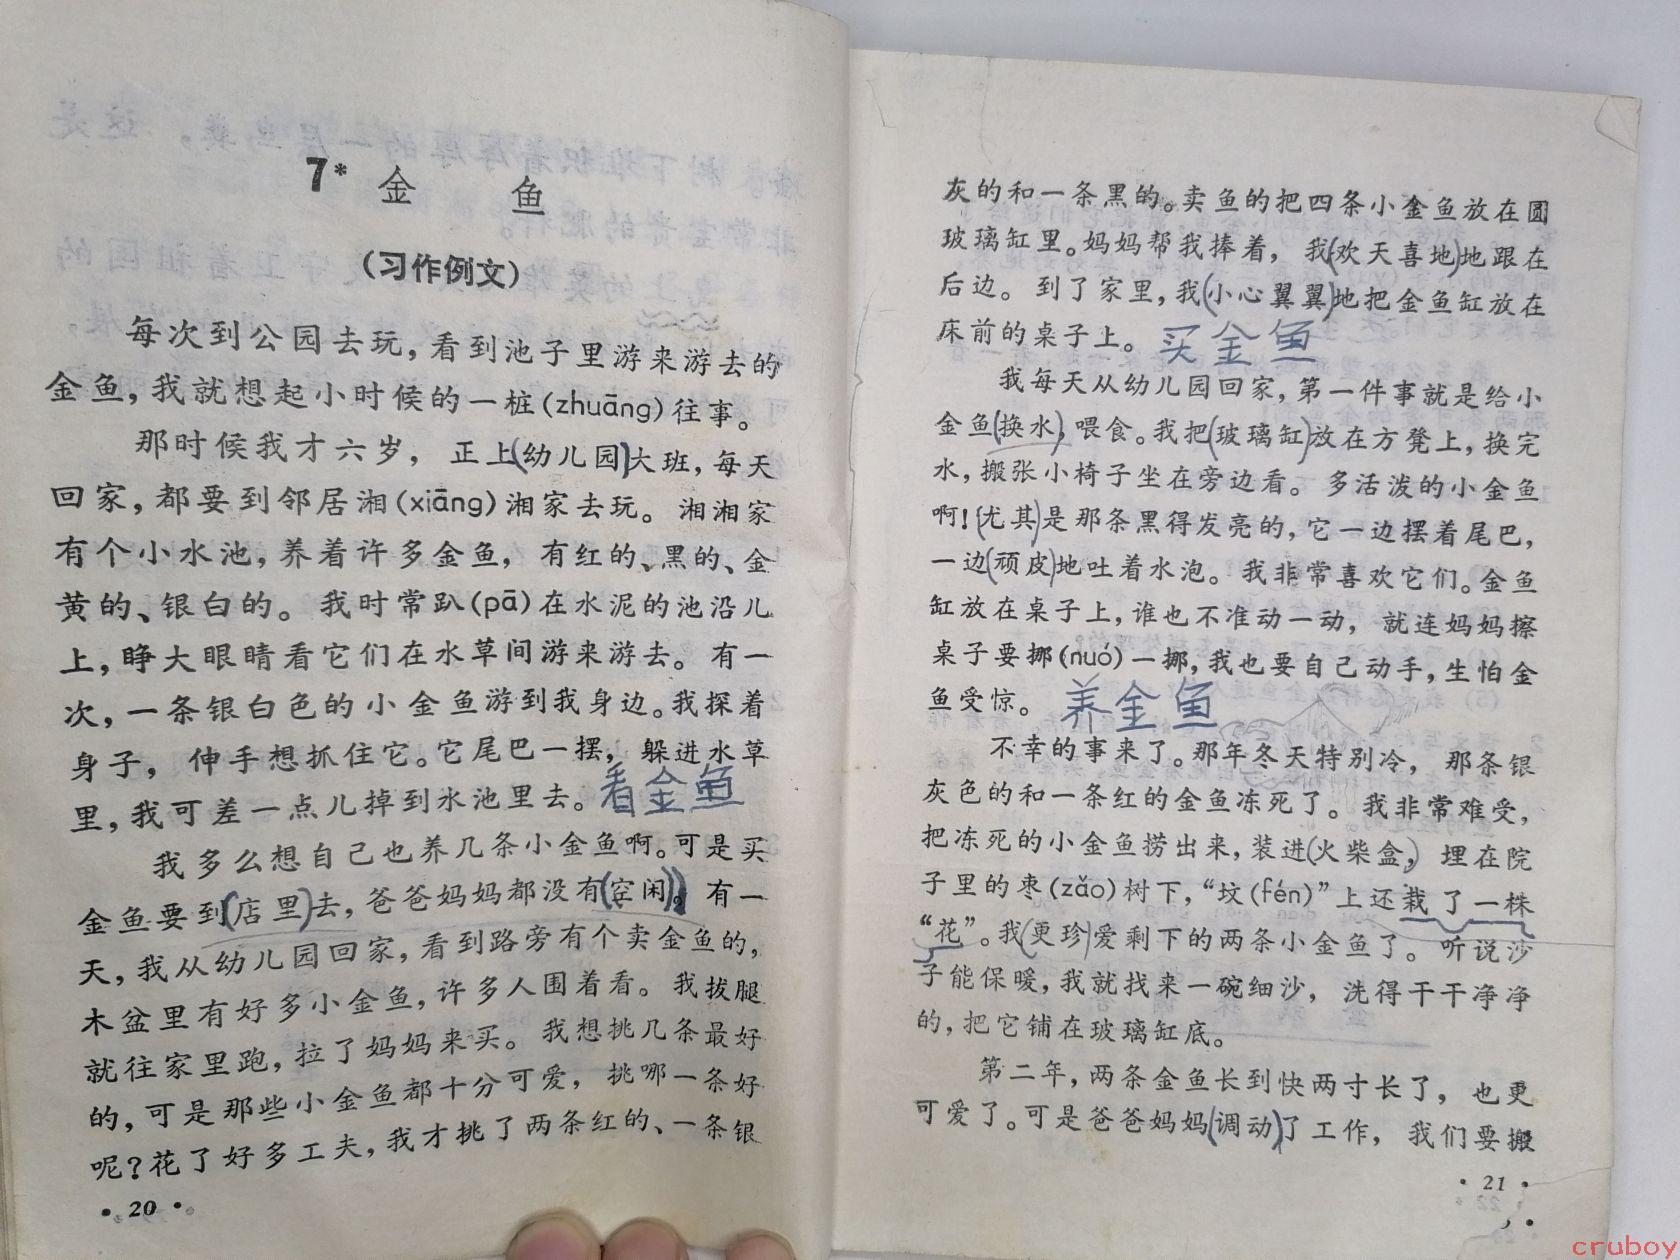 7* 金 鱼
(习作例文)
每次到公园去玩，看到池子里游来游去的
金鱼，我就想起小时候的一桩(zhuāng)往事。
那时候我才六岁，正上(幼儿园)大班，每天
回家，都要到邻居湘(xiāng)湘家去玩。湘湘家
有个小水池，养着许多金鱼，有红的、黑的、金
黄的、银白的。我时常趴(pā)在水泥的池沿儿
上，睁大眼睛看它们在水草间游来游去。有一
次，一条银白色的小金鱼游到我身边。我探着
身子，伸手想抓住它。它尾巴一摆，躲进水草
里，我可差一点儿掉到水池里去。看金鱼
我多么想自己也养几条小金鱼啊。可是买
金鱼要到(店里)去，爸爸妈妈都没有(空闲)。有一
天，我从幼儿园回家，看到路旁有个卖金鱼的，
木盆里有好多小金鱼，许多人围着看。我拔腿
就往家里跑，拉了妈妈来买。我想挑几条最好
的，可是那些小金鱼都十分可爱，挑哪一条好
呢？花了好多工夫，我才挑了两条红的、一条银
·20·
灰的和一条黑的。卖鱼的把四条小金鱼放在圆
玻璃缸里。妈妈帮我捧着，我(欢天喜地)地跟在
后边。到了家里，我(小心翼翼)地把金鱼缸放在
床前的桌子上。买金鱼
我每天从幼儿园回家，第一件事就是给小
金鱼(换水)，喂食。我把(玻璃缸)放在方凳上，换完
水，搬张小椅子坐在旁边看。多活泼的小金鱼
啊！(尤其)是那条黑得发亮的，它一边摆着尾巴，
一边(顽皮)地吐着水泡。我非常喜欢它们。金鱼
缸放在桌子上，谁也不准动一动，就连妈妈擦
桌子要挪(nuó)一挪，我也要自己动手，生怕金
鱼受惊。养金鱼
不幸的事来了。那年冬天特别冷，那条银
灰色的和一条红的金鱼冻死了。我非常难受，
把冻死的小金鱼捞出来，装进(火柴盒)，埋在院
子里的枣(zǎo)树下，“坟(fén)”上还栽了一株
“花”。我(更珍)爱剩下的两条小金鱼了。听说沙
子能保暖，我就找来一碗细沙，洗得干干净净
的，把它铺在玻璃缸底。
第二年，两条金鱼长到快两寸长了，也更
可爱了。可是爸爸妈妈(调动)了工作，我们要搬
·21·
cruboy